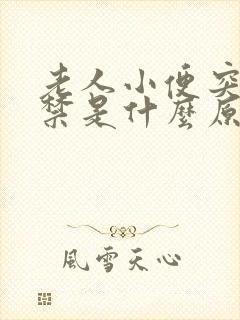 老人小便突
禁是什麼原
風雪天心